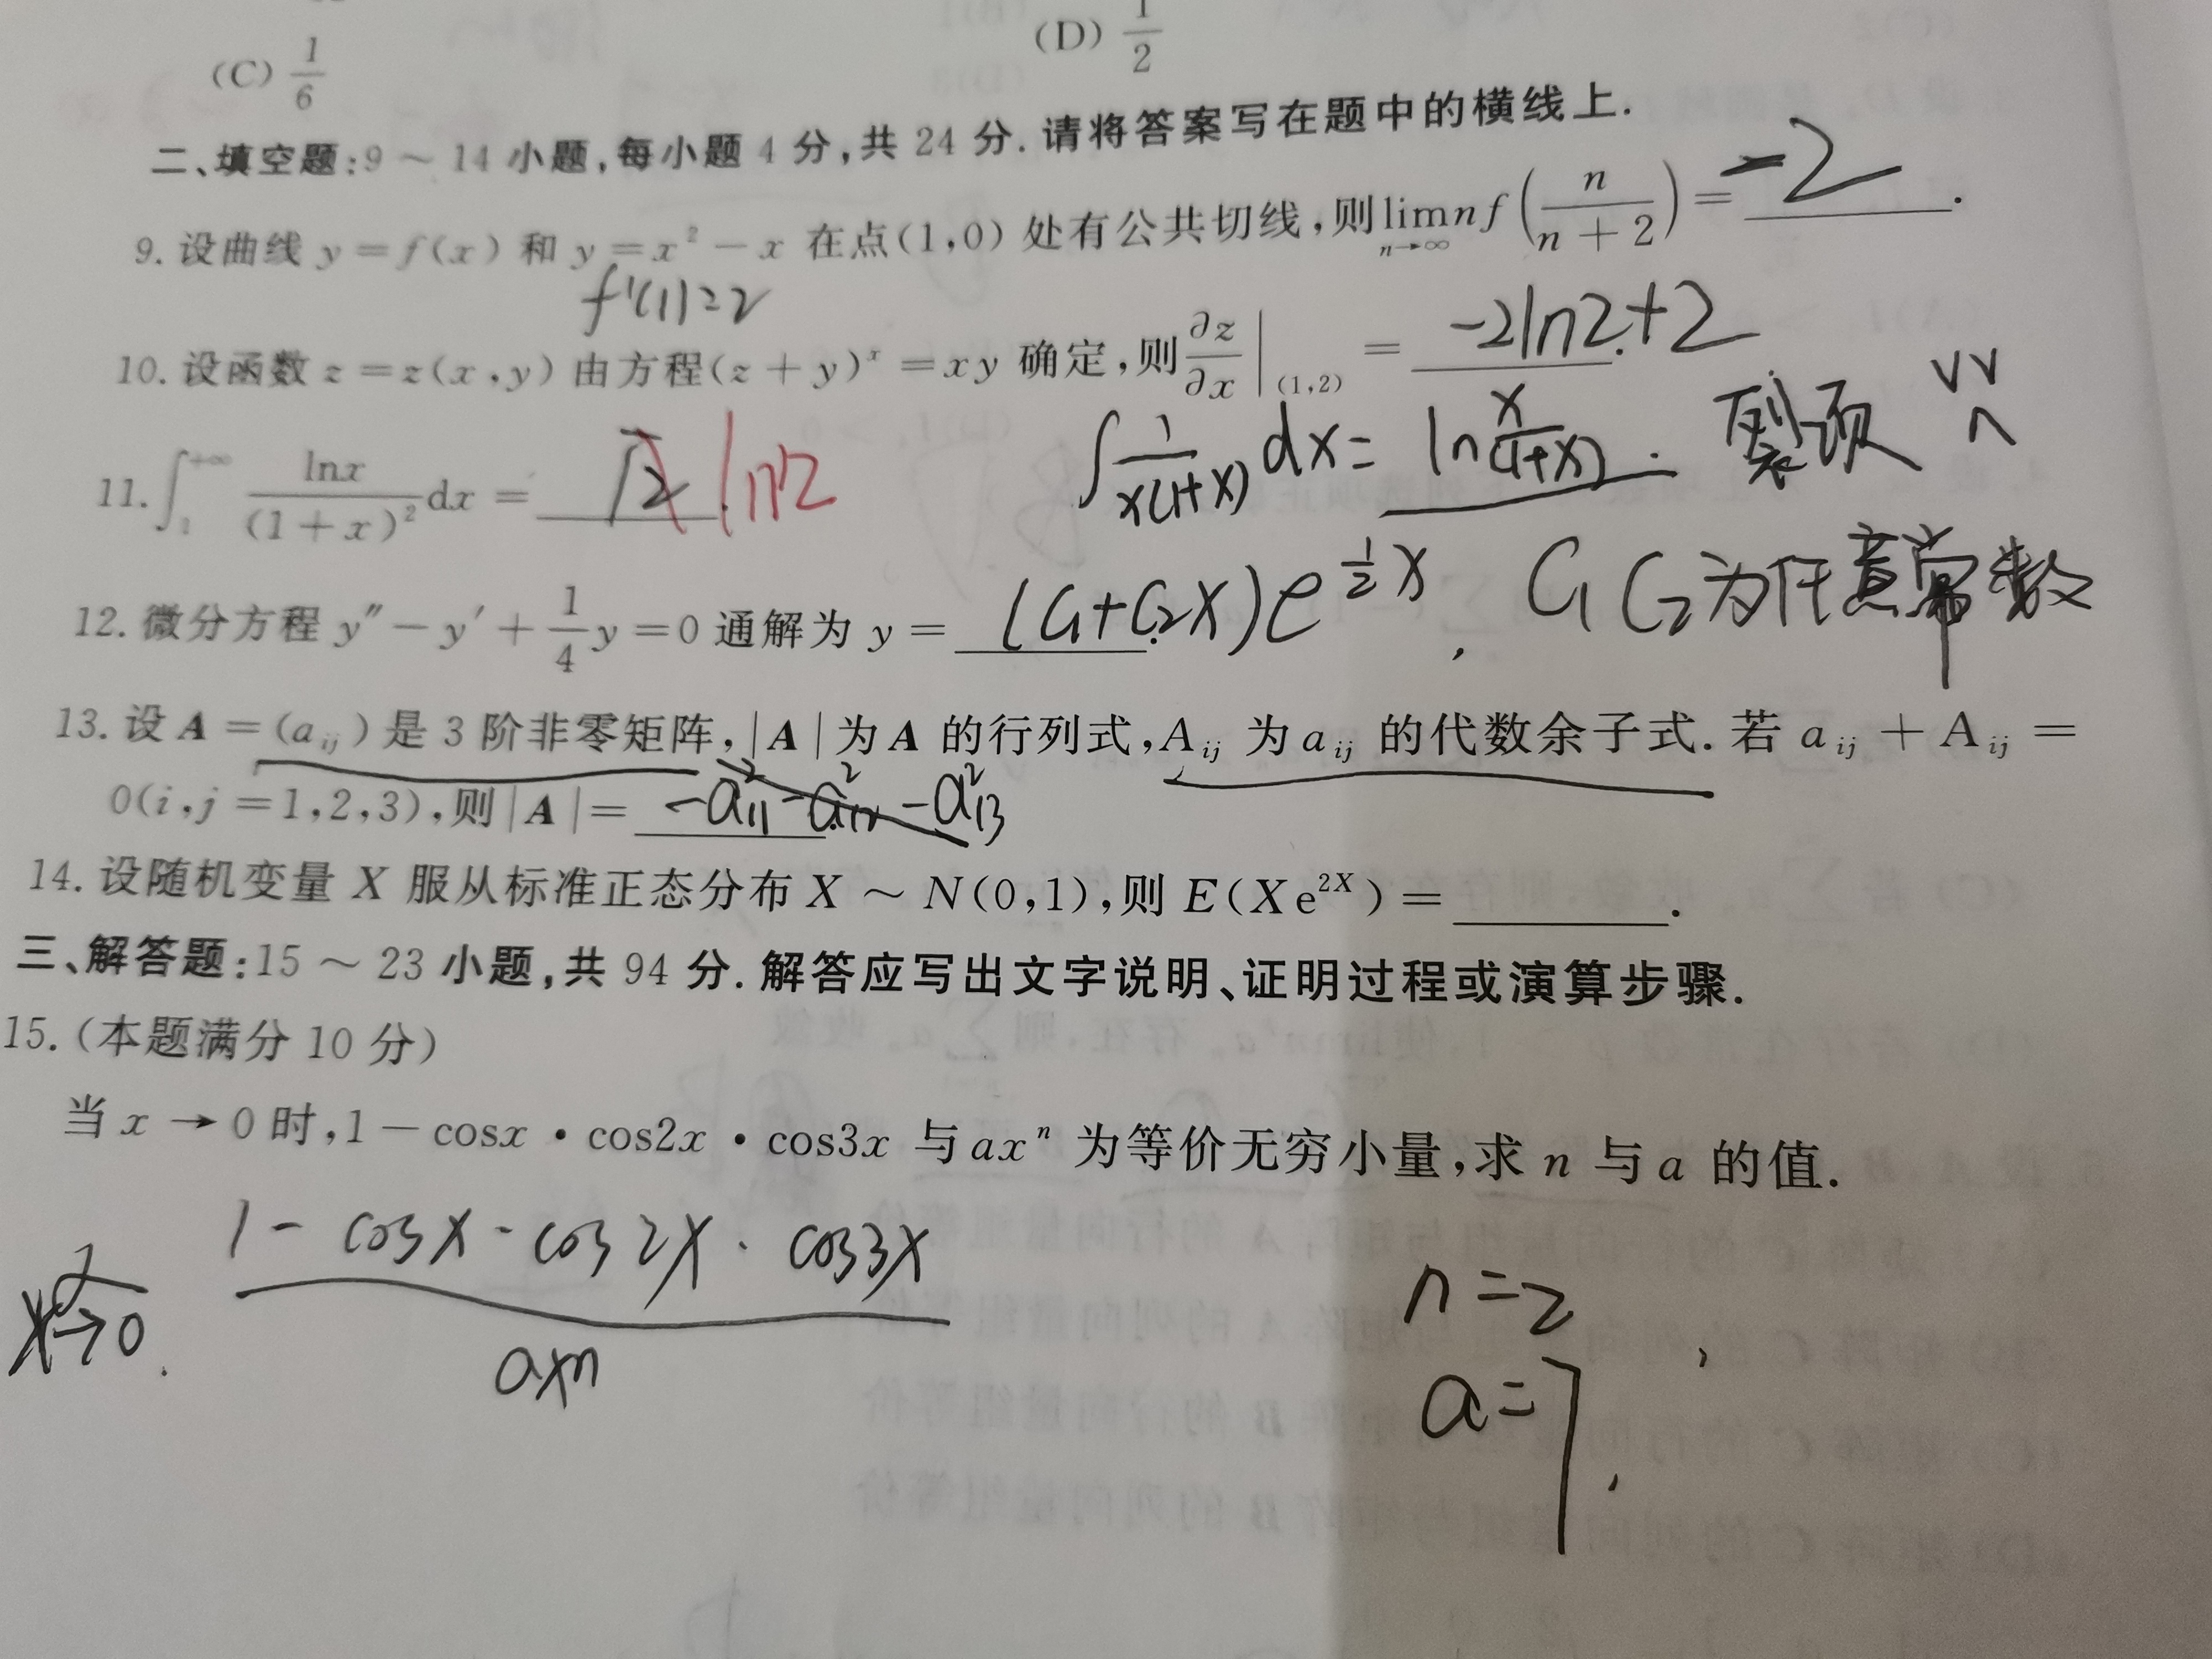 (C) 1/6
(D) 1/2
二、填空题:9～14小题,每小题4分,共24分.请将答案写在题中的横线上.
9. 设曲线 y=f(x) 和 y=x²-x 在点(1,0)处有公共切线,则 lim n→∞ nf(n/(n+2)) = -2.
f'(1)=2
10. 设函数 z=z(x,y) 由方程(z+y)^x=xy 确定,则 ∂z/∂x|(1,2) = -2ln2+2.
∫ 1/(x(1+x)) dx = ln x/(1+x). 裂项
11. ∫₁^{+∞} lnx/(1+x)² dx = ln2
12. 微分方程 y″-y′+1/4 y=0 通解为 y= (C₁+C₂x)e^{1/2 x}, C₁ C₂为任意常数
13. 设 A=(a_{ij}) 是 3 阶非零矩阵,|A|为A 的行列式,A_{ij} 为 a_{ij} 的代数余子式.若 a_{ij}+A_{ij}=
0(i,j=1,2,3),则|A|= -a²₁₁-a²₁₂-a²₁₃
14. 设随机变量 X 服从标准正态分布 X～N(0,1),则 E(Xe^{2X})=______.
三、解答题:15～23小题,共94分.解答应写出文字说明、证明过程或演算步骤.
15. (本题满分10分)
当 x→0 时,1-cosx·cos2x·cos3x 与 ax^n 为等价无穷小量,求 n 与 a 的值.
x→0 (1-cosx·cos2x·cos3x)/(ax^n)
n=2,
a=7.